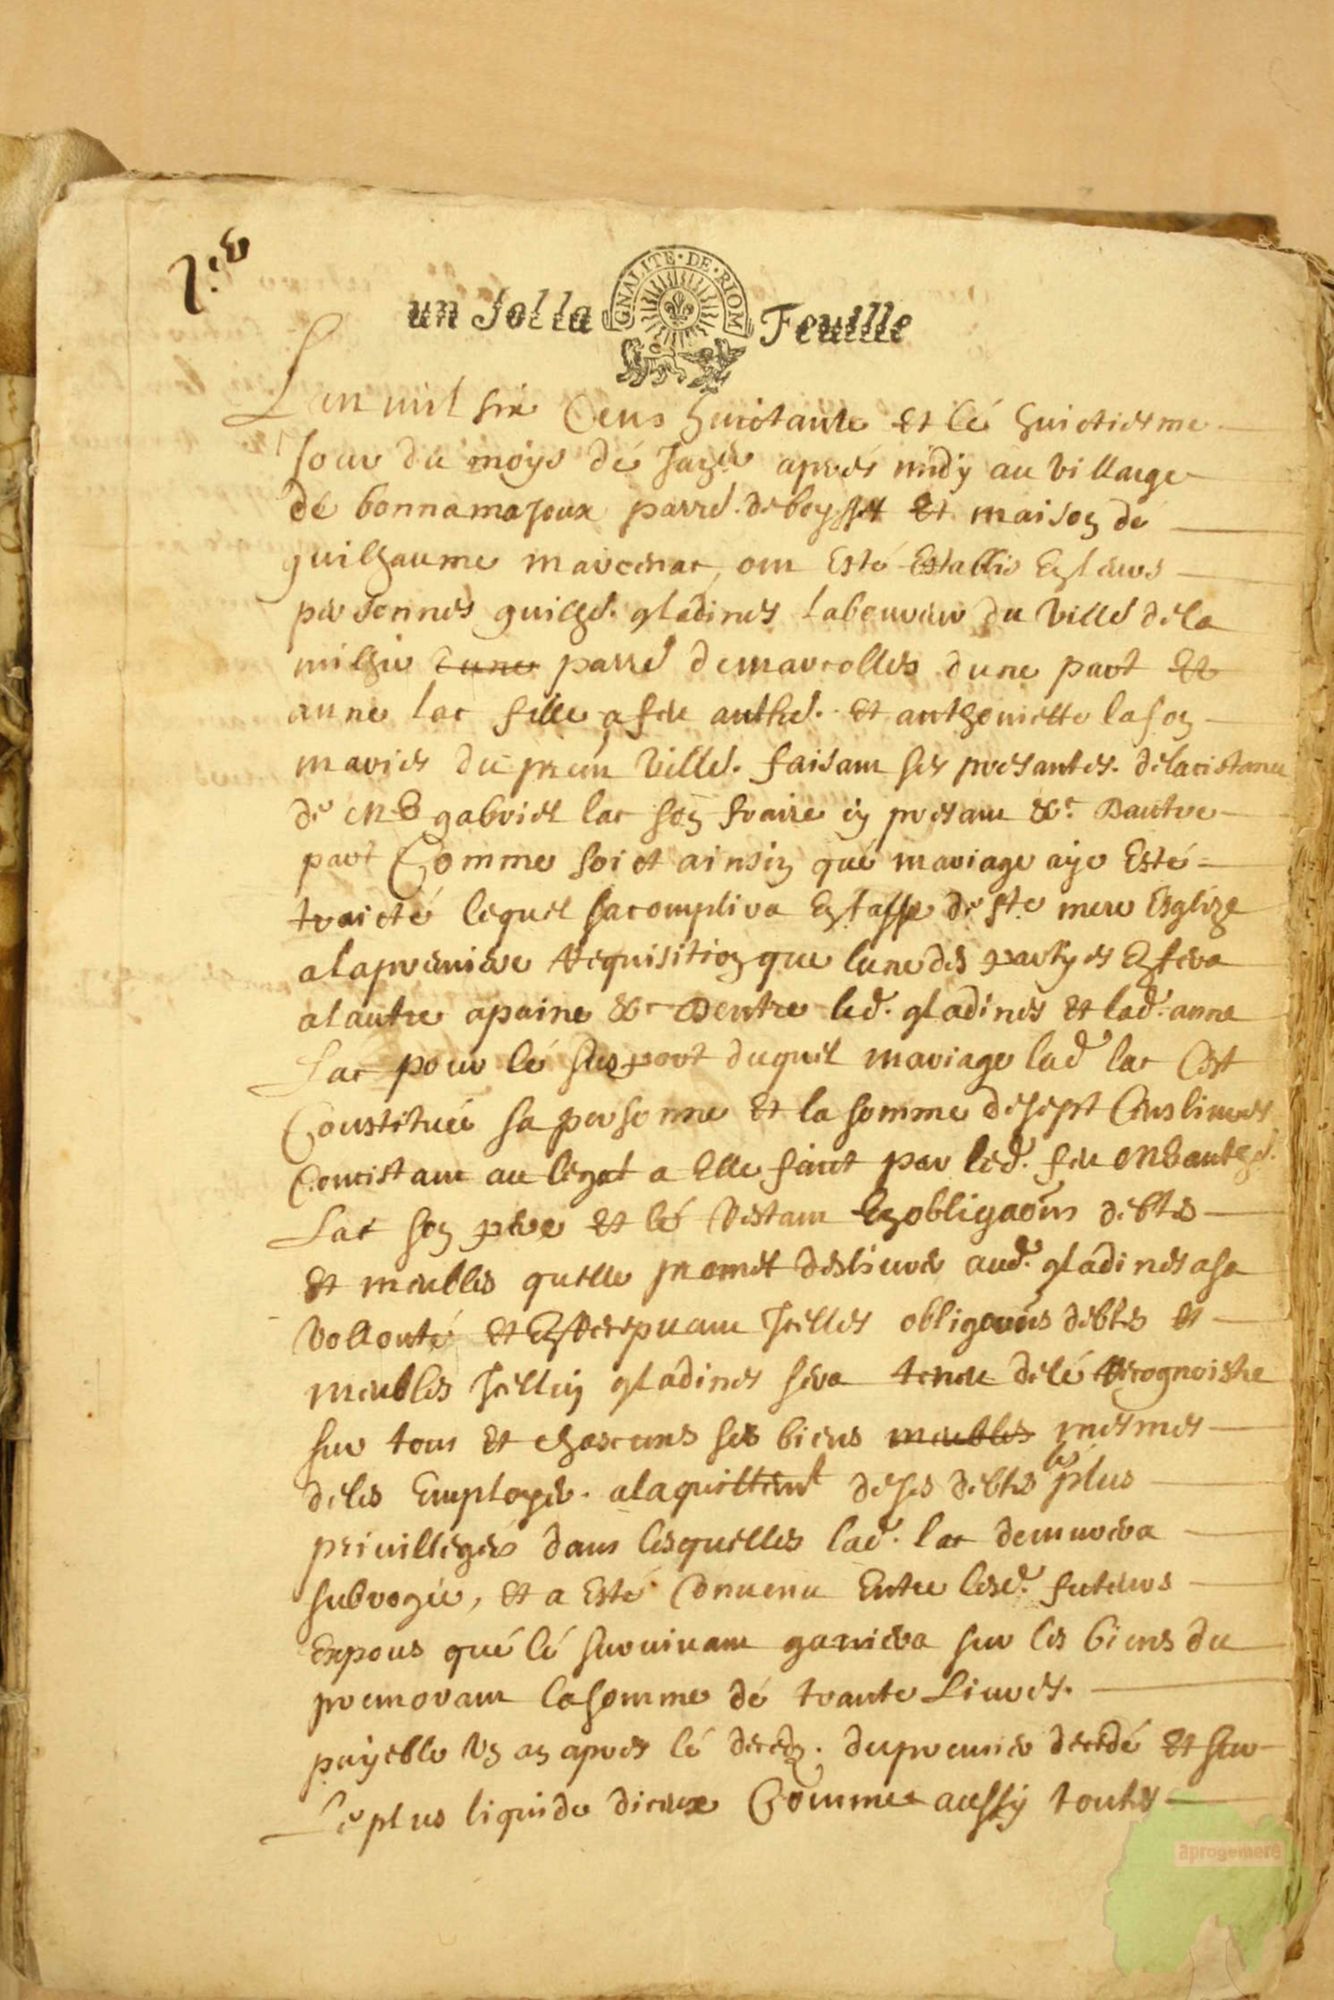 un Solla Feuille
GNALITE·DE·RIOM
Lan mil six Cens huictante et lé huictiesme
Jour du moys dé apres midy au village
dé bonnamajoux parre. de boysset et maison dé
guilhaume marcenac, ont Esté Establis En leurs
personnes guilhe. gladines laboureur du ville dela
milhie dune parre demarcolles dune part et
anne lac fille a feu anthe. et anthoniette lason
maries du ville. faisant ses presantes. delacistance
dé Me gabriel lac son fraire cy presant &c Dautre
part Comme soict ainsin qué mariage aye Esté
traicté lequel sacomplira En fasse de ste mere Esglize
alapremiere Requisition que lune des partyes En fera
alautre apaine &c Dentre led. gladines et lad. anne
Lac pour lé suport duquel mariage lad lac Cest
Constituée sa personne et la somme desept Cens livres
Concistant au legat a Elle faict par led. feu Me anthe.
Lac son pere et lé Restant En obligaõns debtes
et meubles quelle promet deslivrer aud. gladines asa
vollonté et En Recepvant Jcelles obligaõns debtes et
meubles Jcelluy gladines sera tenu delé Recognoistre
sur tous et chascuns ses biens meubles mesmes
deles Employer. alaquittemt deses debtes les plus
privilleges dans lesquelles lad. lac demurera
subrogée, et a Esté Convenu Entre lesd. futeurs
Expous qué lé survivant ganiera sur les biens du
premorant lasomme dé trante Livres.
payeble Un an apres lé deced. dupremier decedé et sur
Le plus liquide diceux Comme aussy toutes
aprogemere